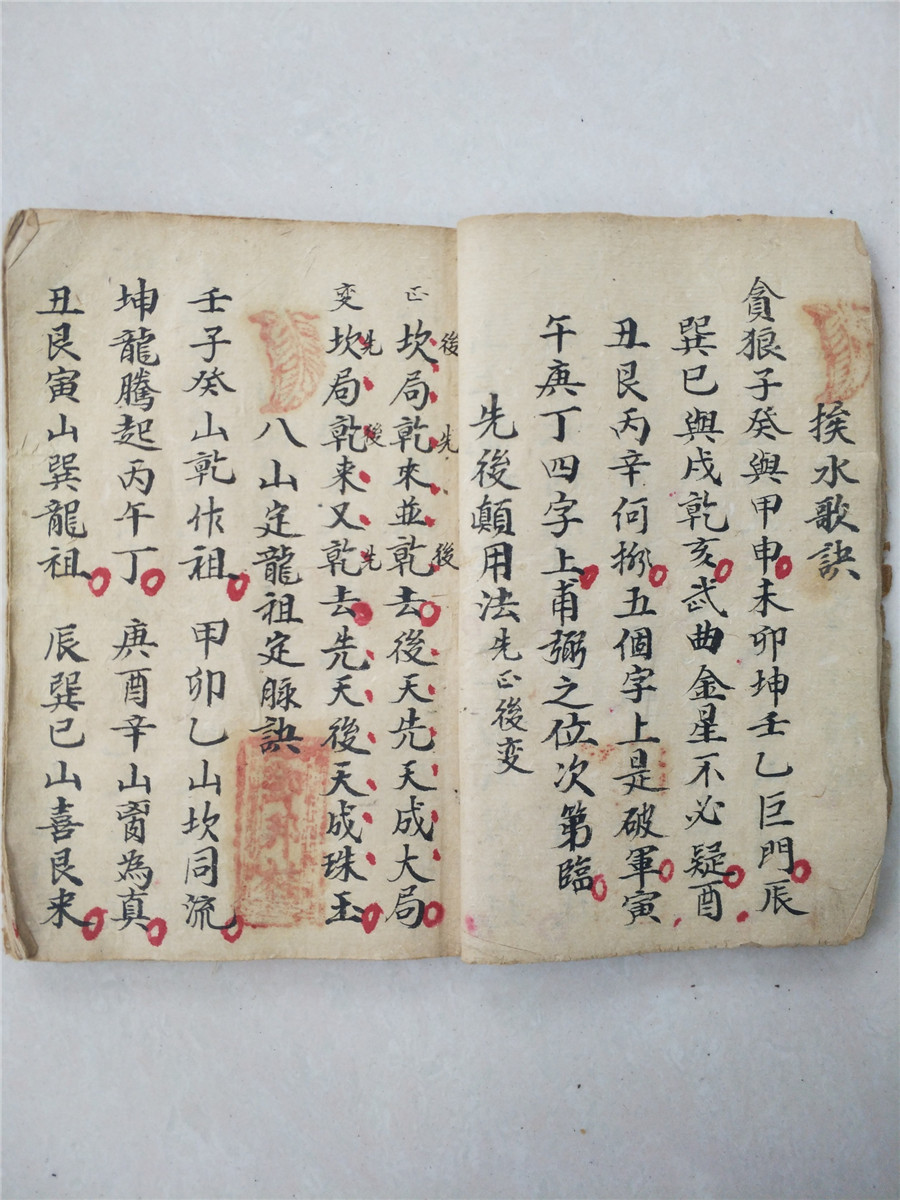 挨水歌訣
貪狼子癸與甲申未卯坤壬乙巨門辰
巽巳與戌乾亥武曲金星不必疑酉
丑艮丙辛何拟五個字上是破軍寅
午庚丁四字上甫弼之位次第臨
先後顛用法先正後变
正坎局乾來並乾去後天先天成大局
後先後
变坎局乾来又乾去先天後天成珠玉
先後先
八山定龍祖定脉訣
壬子癸山乾作祖 甲卯乙山坎同流
坤龍騰起丙午丁 庚酉辛山為真
丑艮寅山巽龍祖 辰巽巳山喜艮来